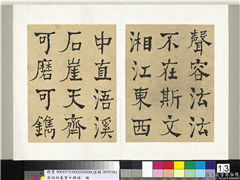 聲容沄沄
不在斯文
湘江東西
中直浯溪
石崖天齊
可磨可鐫
13